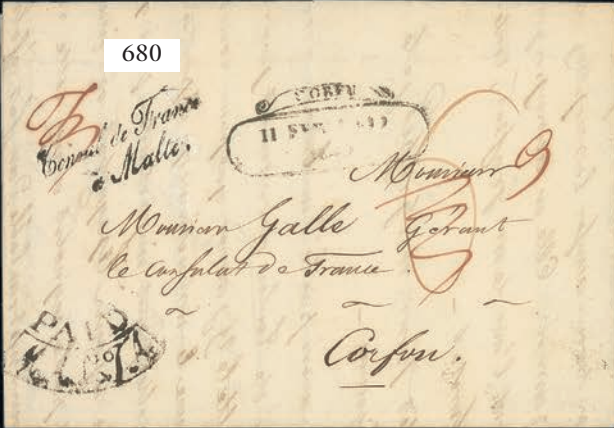 680
Consul de France
à Malte.
CORFU
11
Monsieur
Monsieur Galle Gérant
le Consulat de France
Corfou.
PAID
AT
MALTA